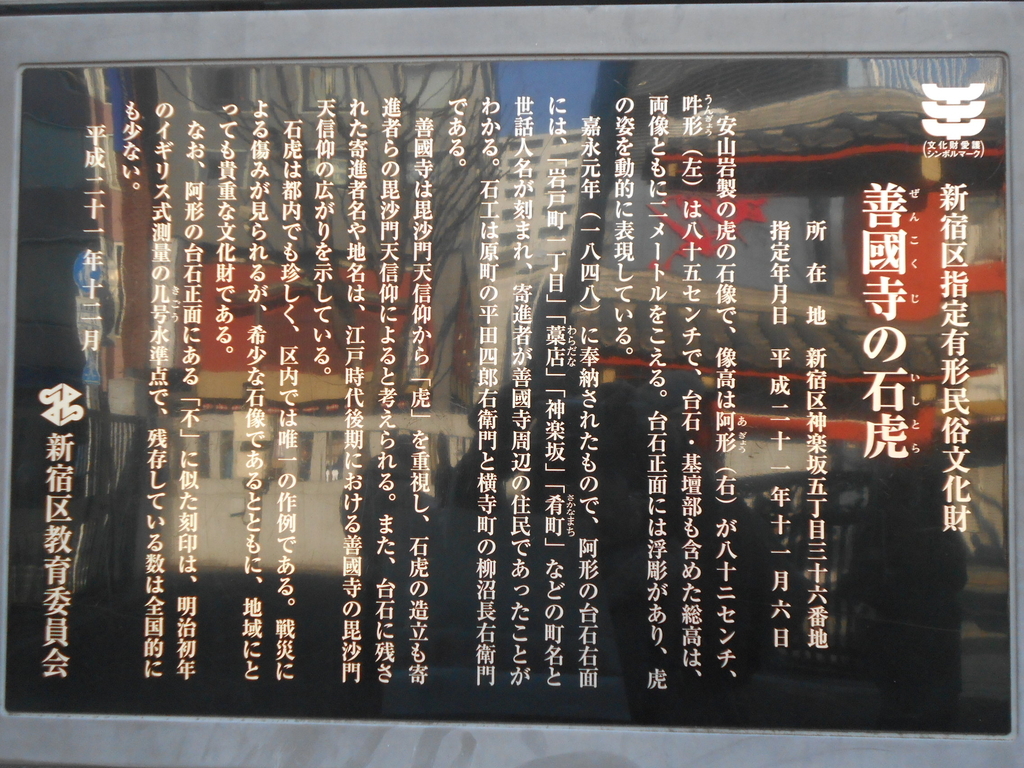 文化財愛護
シンボルマーク
新宿区指定有形民俗文化財
善國寺の石虎
ぜんこくじ
いしとら
所在地 新宿区神楽坂五丁目三十六番地
指定年月日 平成二十一年十一月六日
安山岩製の虎の石像で、像高は阿形（右）が八十二センチ、
あぎょう
吽形（左）は八十五センチで、台石・基壇部も含めた総高は、
うんぎょう
両像ともに二メートルをこえる。台石正面には浮彫があり、虎
の姿を動的に表現している。
嘉永元年（一八四八）に奉納されたもので、阿形の台石右面
には、「岩戸町一丁目」「藁店」「神楽坂」「肴町」などの町名と
わらだな
さかなまち
世話人名が刻まれ、寄進者が善國寺周辺の住民であったことが
わかる。石工は原町の平田四郎右衛門と横寺町の柳沼長右衛門
である。
善國寺は毘沙門天信仰から「虎」を重視し、石虎の造立も寄
進者らの毘沙門天信仰によると考えられる。また、台石に残さ
れた寄進者名や地名は、江戸時代後期における善國寺の毘沙門
天信仰の広がりを示している。
石虎は都内でも珍しく、区内では唯一の作例である。戦災に
よる傷みが見られるが、希少な石像であるとともに、地域にと
っても貴重な文化財である。
なお、阿形の台石正面にある「不」に似た刻印は、明治初年
のイギリス式測量の几号水準点で、残存している数は全国的に
きごう
も少ない。
平成二十一年十二月
新宿区教育委員会